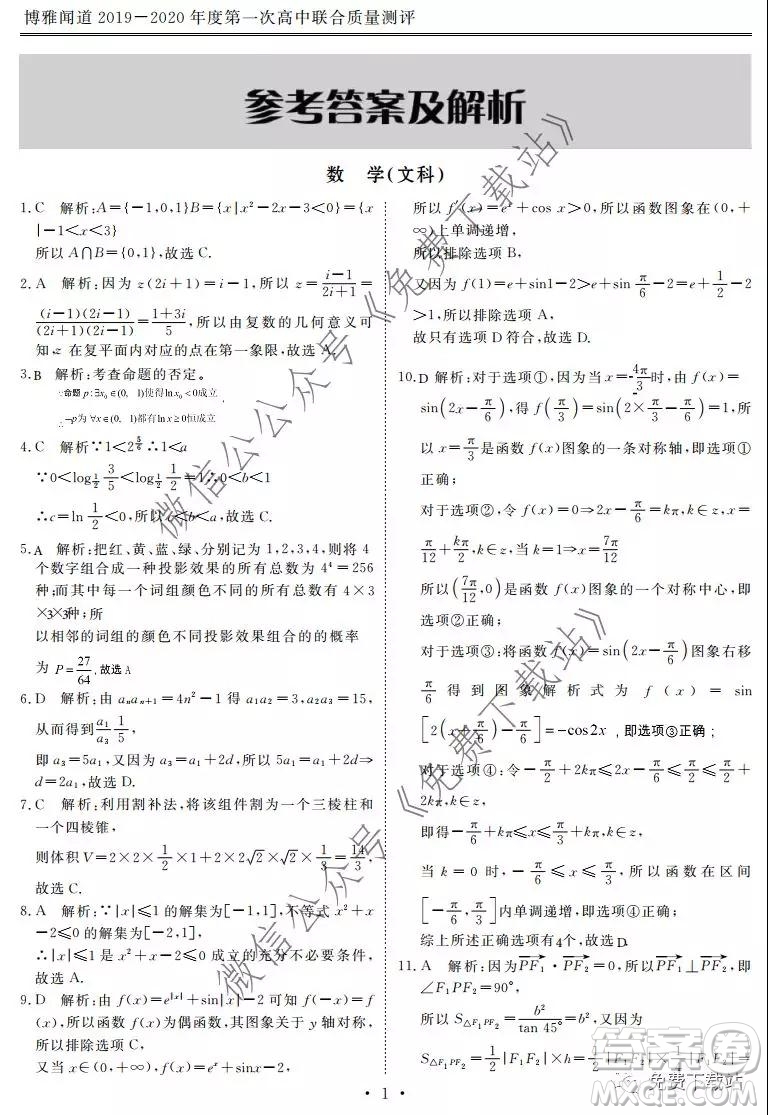 博雅闻道2019-2020年度第一次高中联合质量测评
参考答案及解析
数 学(文科)
1.C 解析:A={-1,0,1}B={x|x²-2x-3<0}={x
|-1<x<3}
所以A∩B={0,1},故选C.
2.A 解析:因为z(2i+1)=i-1,所以z=(i-1)/(2i+1)=
(i-1)(2i-1)/(2i+1)(2i-1)=(1+3i)/5,所以由复数的几何意义可
知z在复平面内对应的点在第一象限,故选A.
3.B 解析:考查命题的否定。
∵命题p:∃x₀∈(0, 1)使得ln x₀<0成立
∴¬p为 ∀x∈(0, 1)都有ln x≥0恒成立
4.C 解析∵1<2^(5/6)∴1<a
∵0<log_(1/2) 3/5<log_(1/2) 1/2=1∴0<b<1
∴c=ln 1/2<0,所以c<b<a,故选C.
5.A 解析:把红、黄、蓝、绿、分别记为1,2,3,4,则将4
个数字组合成一种投影效果的所有总数为4⁴=256
种;而其中每一个词组颜色不同的所有总数有4×3
×3×3种;所
以相邻的词组的颜色不同投影效果组合的的概率
为 P=27/64,故选A
6.D 解析:由aₙaₙ₊₁=4n²-1得a₁a₂=3,a₂a₃=15,
从而得到a₁/a₃ 1/5,
即a₃=5a₁,又因为a₃=a₁+2d,所以5a₁=a₁+2d⇒
d=2a₁,故选D.
7.C 解析:利用割补法,将该组件割为一个三棱柱和
一个四棱锥,
则体积V=2×2×1/2×1+2×2√2×√2×1/3=14/3,
故选C.
8.A 解析:∵|x|≤1的解集为[-1,1],不等式x²+x
-2≤0的解集为[-2,1],
∴|x|≤1是x²+x-2≤0成立的充分不必要条件,
故选A.
9.D 解析:由f(x)=e^|x|+sin|x|-2可知f(-x)=f
(x)为偶函数,其图象关于y轴对称,
所以排除选项C,
又当x∈(0,+∞),f(x)=eˣ+sinx-2,
所以f′(x)=eˣ+cos x>0,所以函数图象在(0,+
∞)上单调递增,
所以排除选项B,
又因为f(1)=e+sin1-2>e+sin π/6-2=e+1/2-2
>1,所以排除选项A,
故只有选项D符合,故选D.
10.D 解析:对于选项①,因为当x=4π/3时,由f(x)=
sin(2x-π/6),得f(π/3)=sin(2×π/3-π/6)=1,所
以x=π/3是函数f(x)图象的一条对称轴,即选项①
正确;
对于选项②,令f(x)=0⇒2x-π/6=kπ,k∈z,x=
π/12+kπ/2,k∈z,当k=1⇒x=7π/12
所以(7π/12,0)是函数f(x)图象的一个对称中心,即
选项②正确;
对于选项③:将函数f(x)=sin(2x-π/6)图象右移
π/6得到图象解析式为f(x)=sin
[2(x-π/6)-π/6]=-cos2x,即选项③正确;
对于选项④:令-π/2+2kπ≤2x-π/6≤π/2≤π/2+
2kπ,k∈z,
即得-π/6+kπ≤x≤π/3+kπ,
当k=0时,-π/6≤x≤π/3,所以函数在区间
[-π/6,π/3]内单调递增,即选项④正确,
综上所述正确选项有4个,故选D
11.A 解析:因为PF₁·PF₂=0,所以PF₁⊥PF₂,即
∠F₁PF₂=90°,
所以S△F₁PF₂=b²/tan 45°=b²,又因为
S△F₁PF₂=1/2|F₁F₂|×h=1/2|F₁F₂|×1/4|F₁F₂|=
· 1 ·
微信公众号《免费下载站》
微信公众号《免费下载站》
答案圈
免费下载站